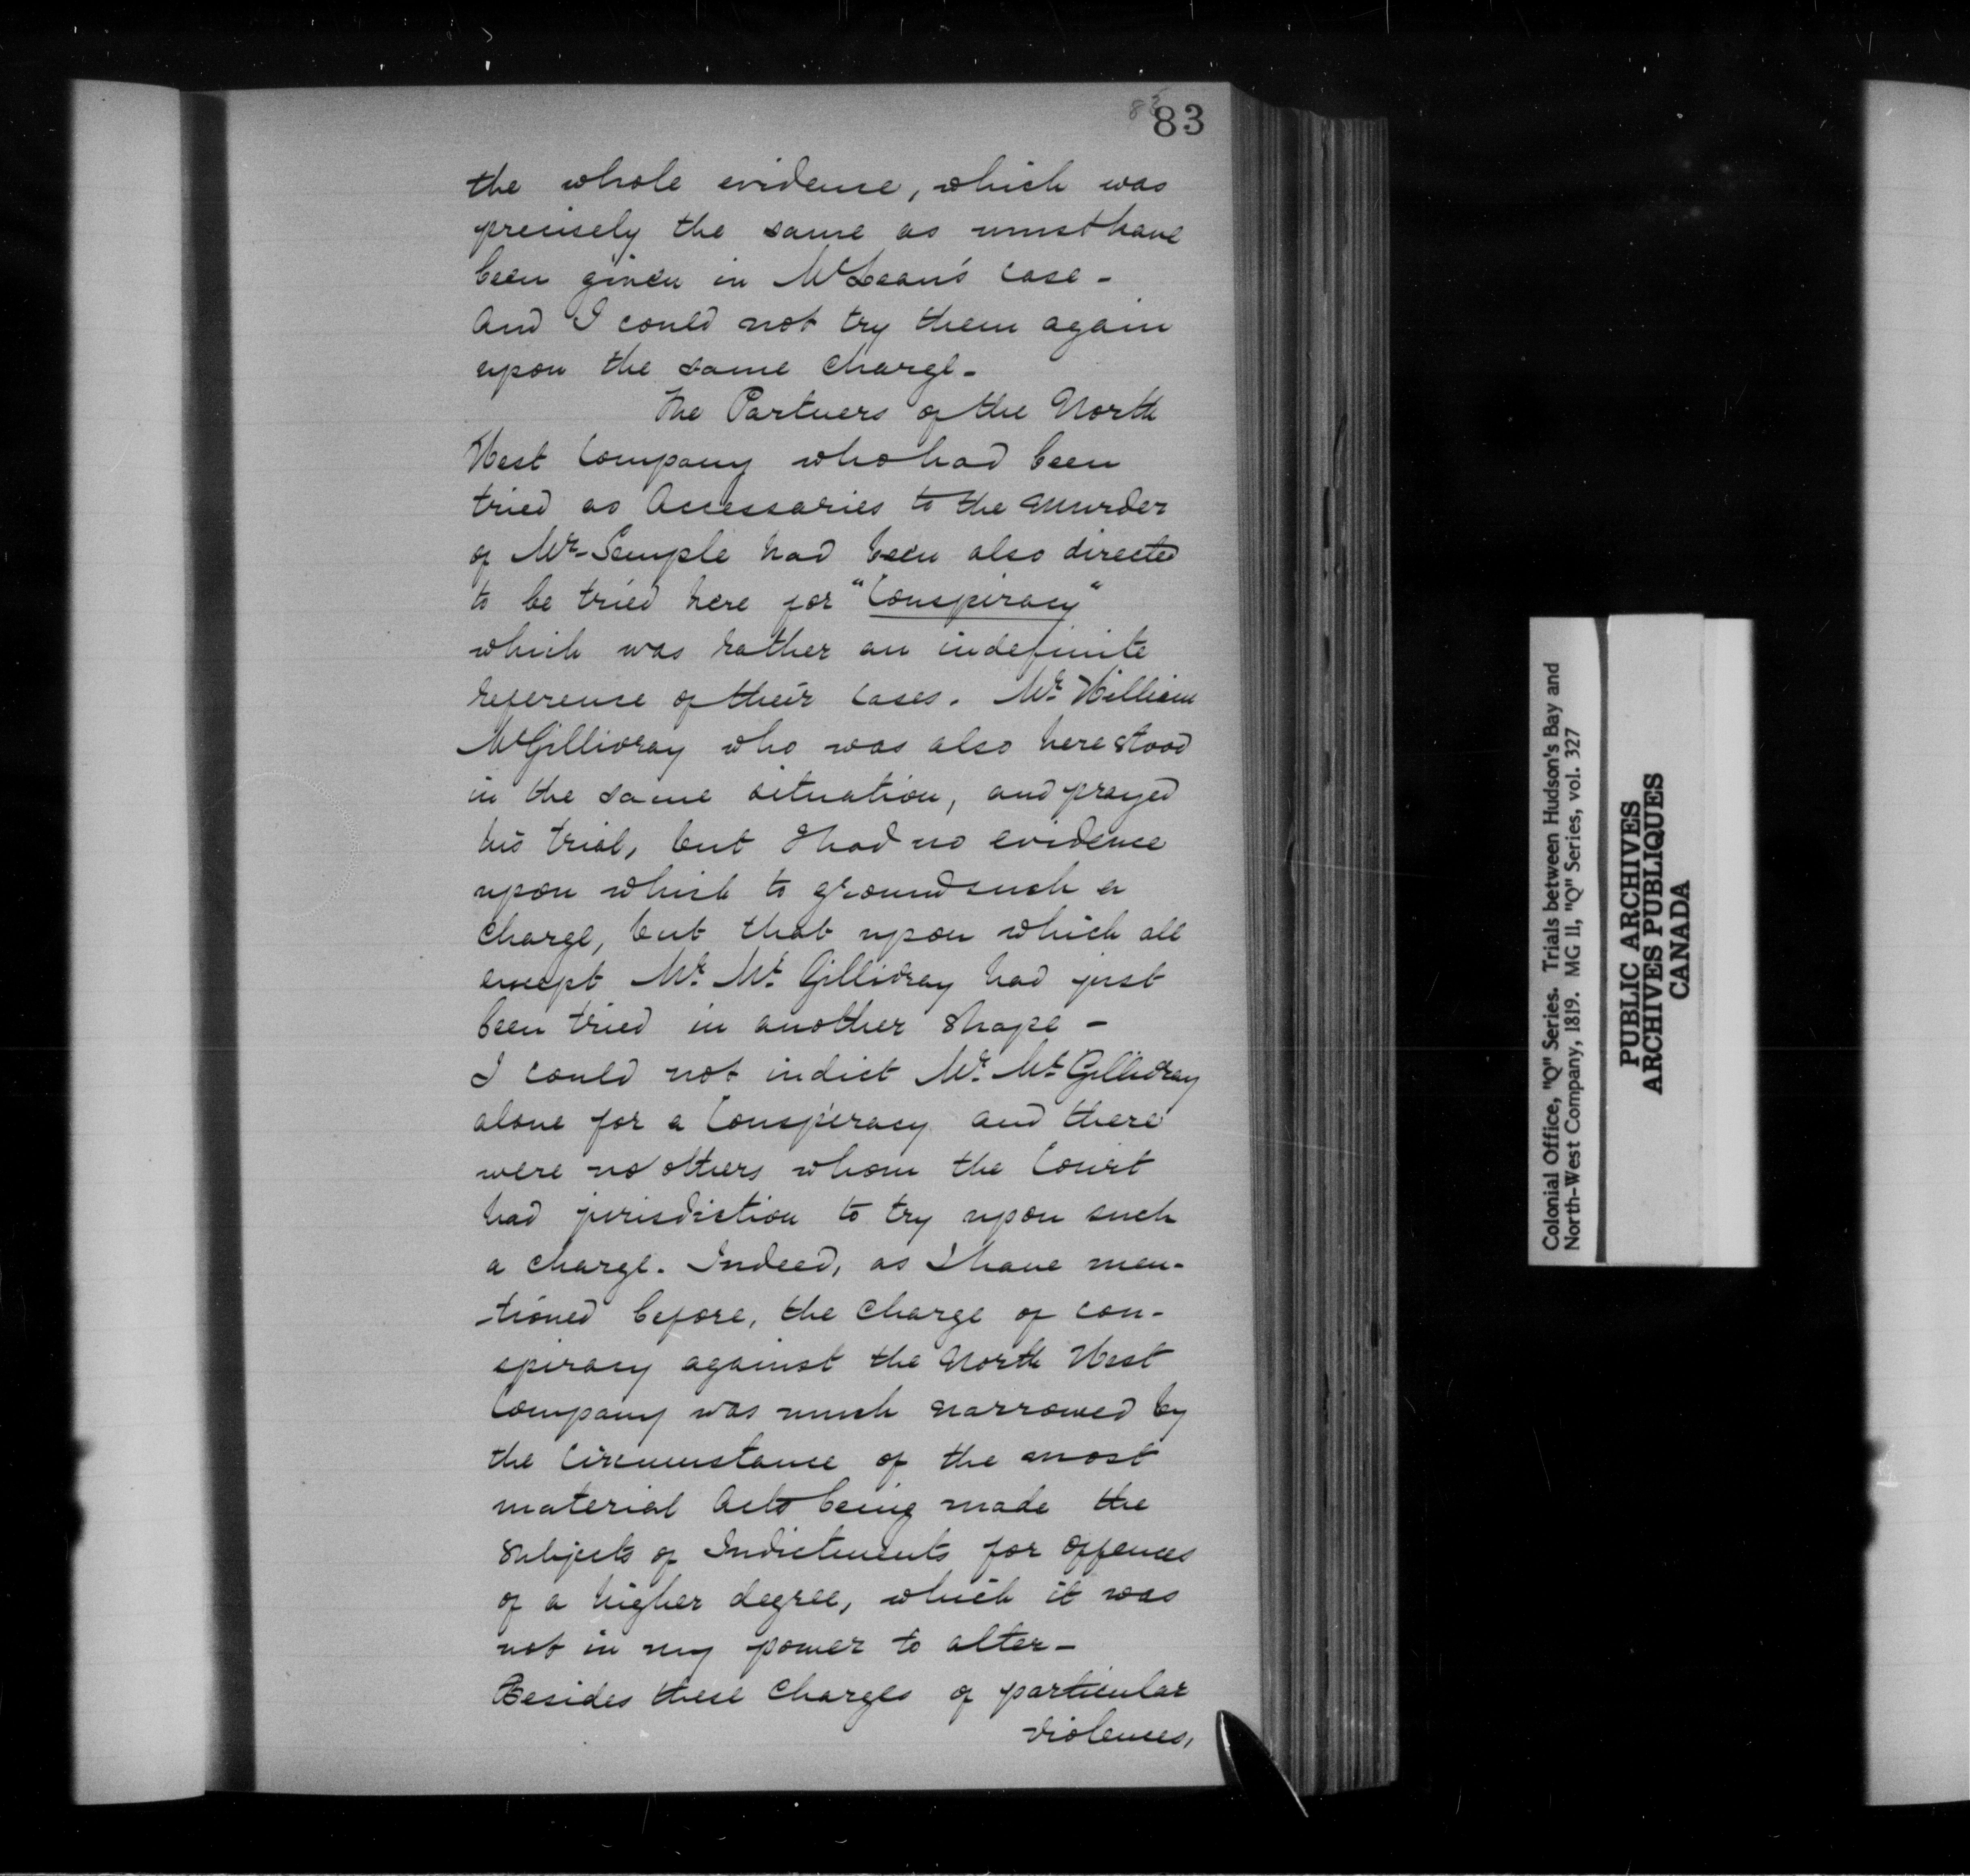 83
the whole evidence, which was
precisely the same as must have
been given in McLean's case -
And I could not try them again
upon the same charge -
The Partners of the North
West Company who had been
tried as Accessaries to the Murder
of Mr. Semple had been also directed
to be tried here for "Conspiracy"
which was rather an indefinite
reference of their cases. Mr. William
McGillivray who was also here stood
in the same situation, and prayed
his trial, but I had no evidence
upon which to ground such a
charge, but that upon which all
except Mr. Mc. Gillivray had just
been tried in another shape -
I could not indict Mr. Mc. Gillivray
alone for a Conspiracy and there
were no others whom the Court
had jurisdiction to try upon such
a charge. Indeed, as I have men-
-tioned before, the charge of con-
spiracy against the North West
Company was much narrowed by
the circumstance of the most
material Acts being made the
subjects of Indictments for offences
of a higher degree, which it was
not in my power to alter -
Besides these Charges of particular
violences,
Colonial Office, "Q" Series. Trials between Hudson's Bay and
North-West Company, 1819. MG 11, "Q" Series, vol. 327
PUBLIC ARCHIVES
ARCHIVES PUBLIQUES
CANADA